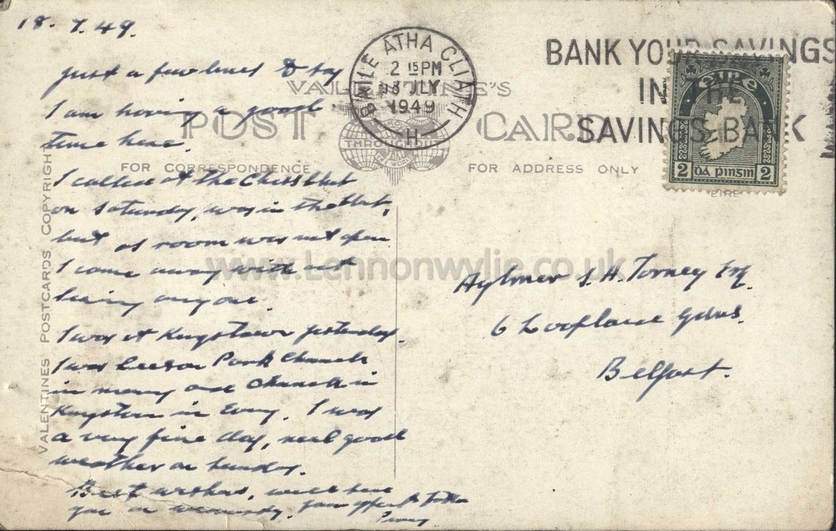 18.7.49.
Just a few lines to say
I am having a good
time here.
I called at the Chess Club
on Saturday, was in the Club,
but as room was not open
I came away with out
seeing anyone.
I was at Kingstown yesterday.
I was Leeson Park Church
in morning and Church in
Kingstown in Evng. I was
a very fine day, real good
weather on Sunday.
Best wishes, will see
you on Wednesday, your
Percy
BAILE ATHA CLIATH
2 15 PM
18 JLY
1949
H
BANK YOUR SAVINGS
IN THE
SAVINGS BANK
VALENTINE'S
POST CARD
THROUGHOUT
FOR CORRESPONDENCE
FOR ADDRESS ONLY
éire
2 dá pinsin 2
EIRE
Aylmer S. H. Torney Esq.
6 Gdns.
Belfast.
VALENTINES POSTCARDS COPYRIGHT
www.Lennonwylie.co.uk